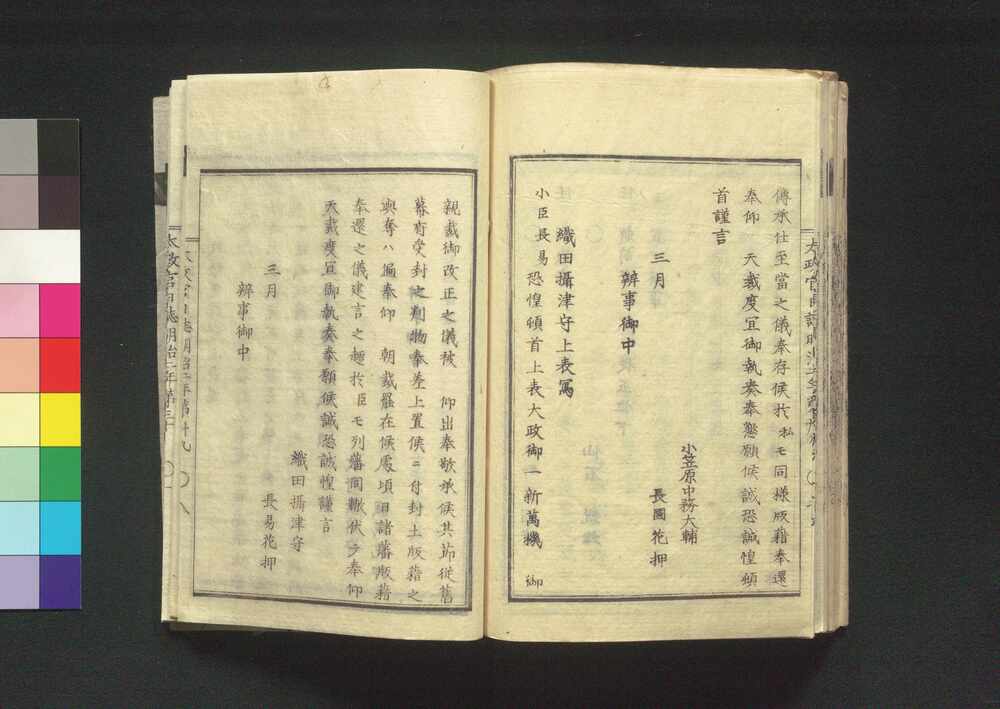 傳承仕至當之儀奉存候於私モ同様版籍奉還
奉仰 天裁度宜御執奏奉懇願候誠恐誠惶頓
首謹言
三月
辨事御中
小笠原中務大輔
長國花押
織田攝津守上表寫
小臣長易恐惶頓首上表大政御一新萬機 御
親裁御改正之儀被 仰出奉敬承候其節從舊
幕府受封之判物奉差上置候ニ付封土版籍之
與奪ハ偏奉仰 朝裁罷在候處頃日諸藩版藉
奉還之儀建言之趣於臣モ列藩同轍伏テ奉仰
天裁度宜御執奏奉願候誠恐誠惶謹言
織田攝津守
三月 長易花押
辨事御中
太政官日誌明治二年第廿九 〇 八
太政官日誌明治二年第三十 〇 一